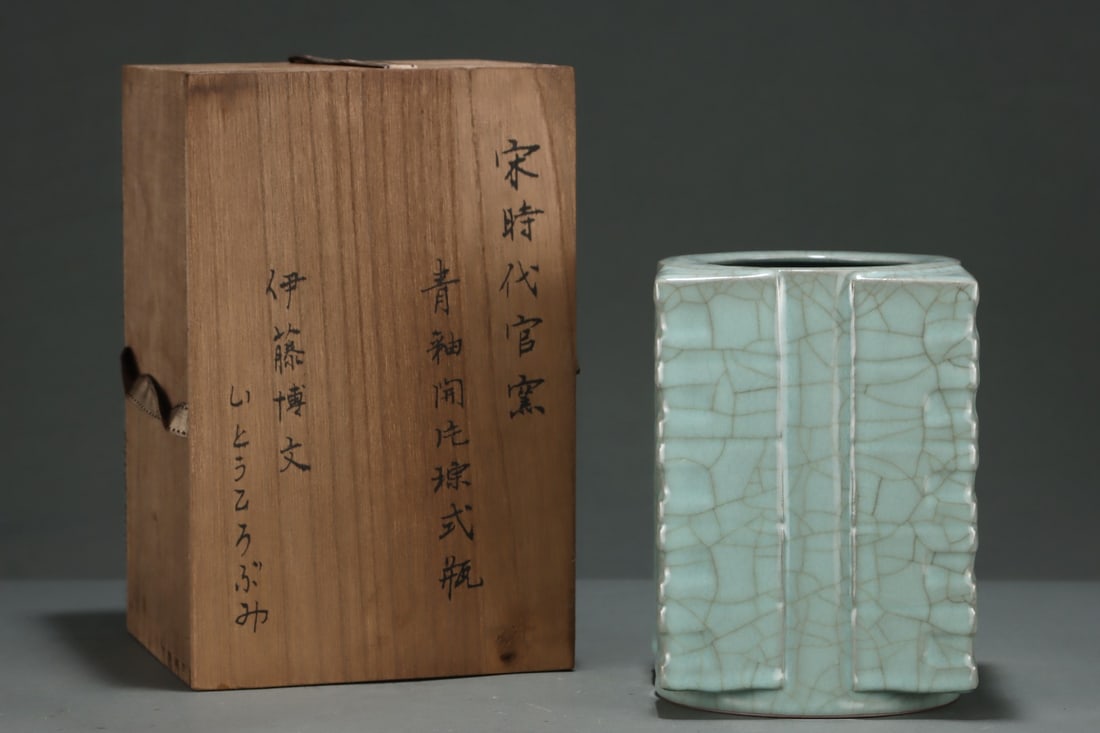 宋時代官窯
青釉開片琮式瓶
伊藤博文
いとうひろぶみ